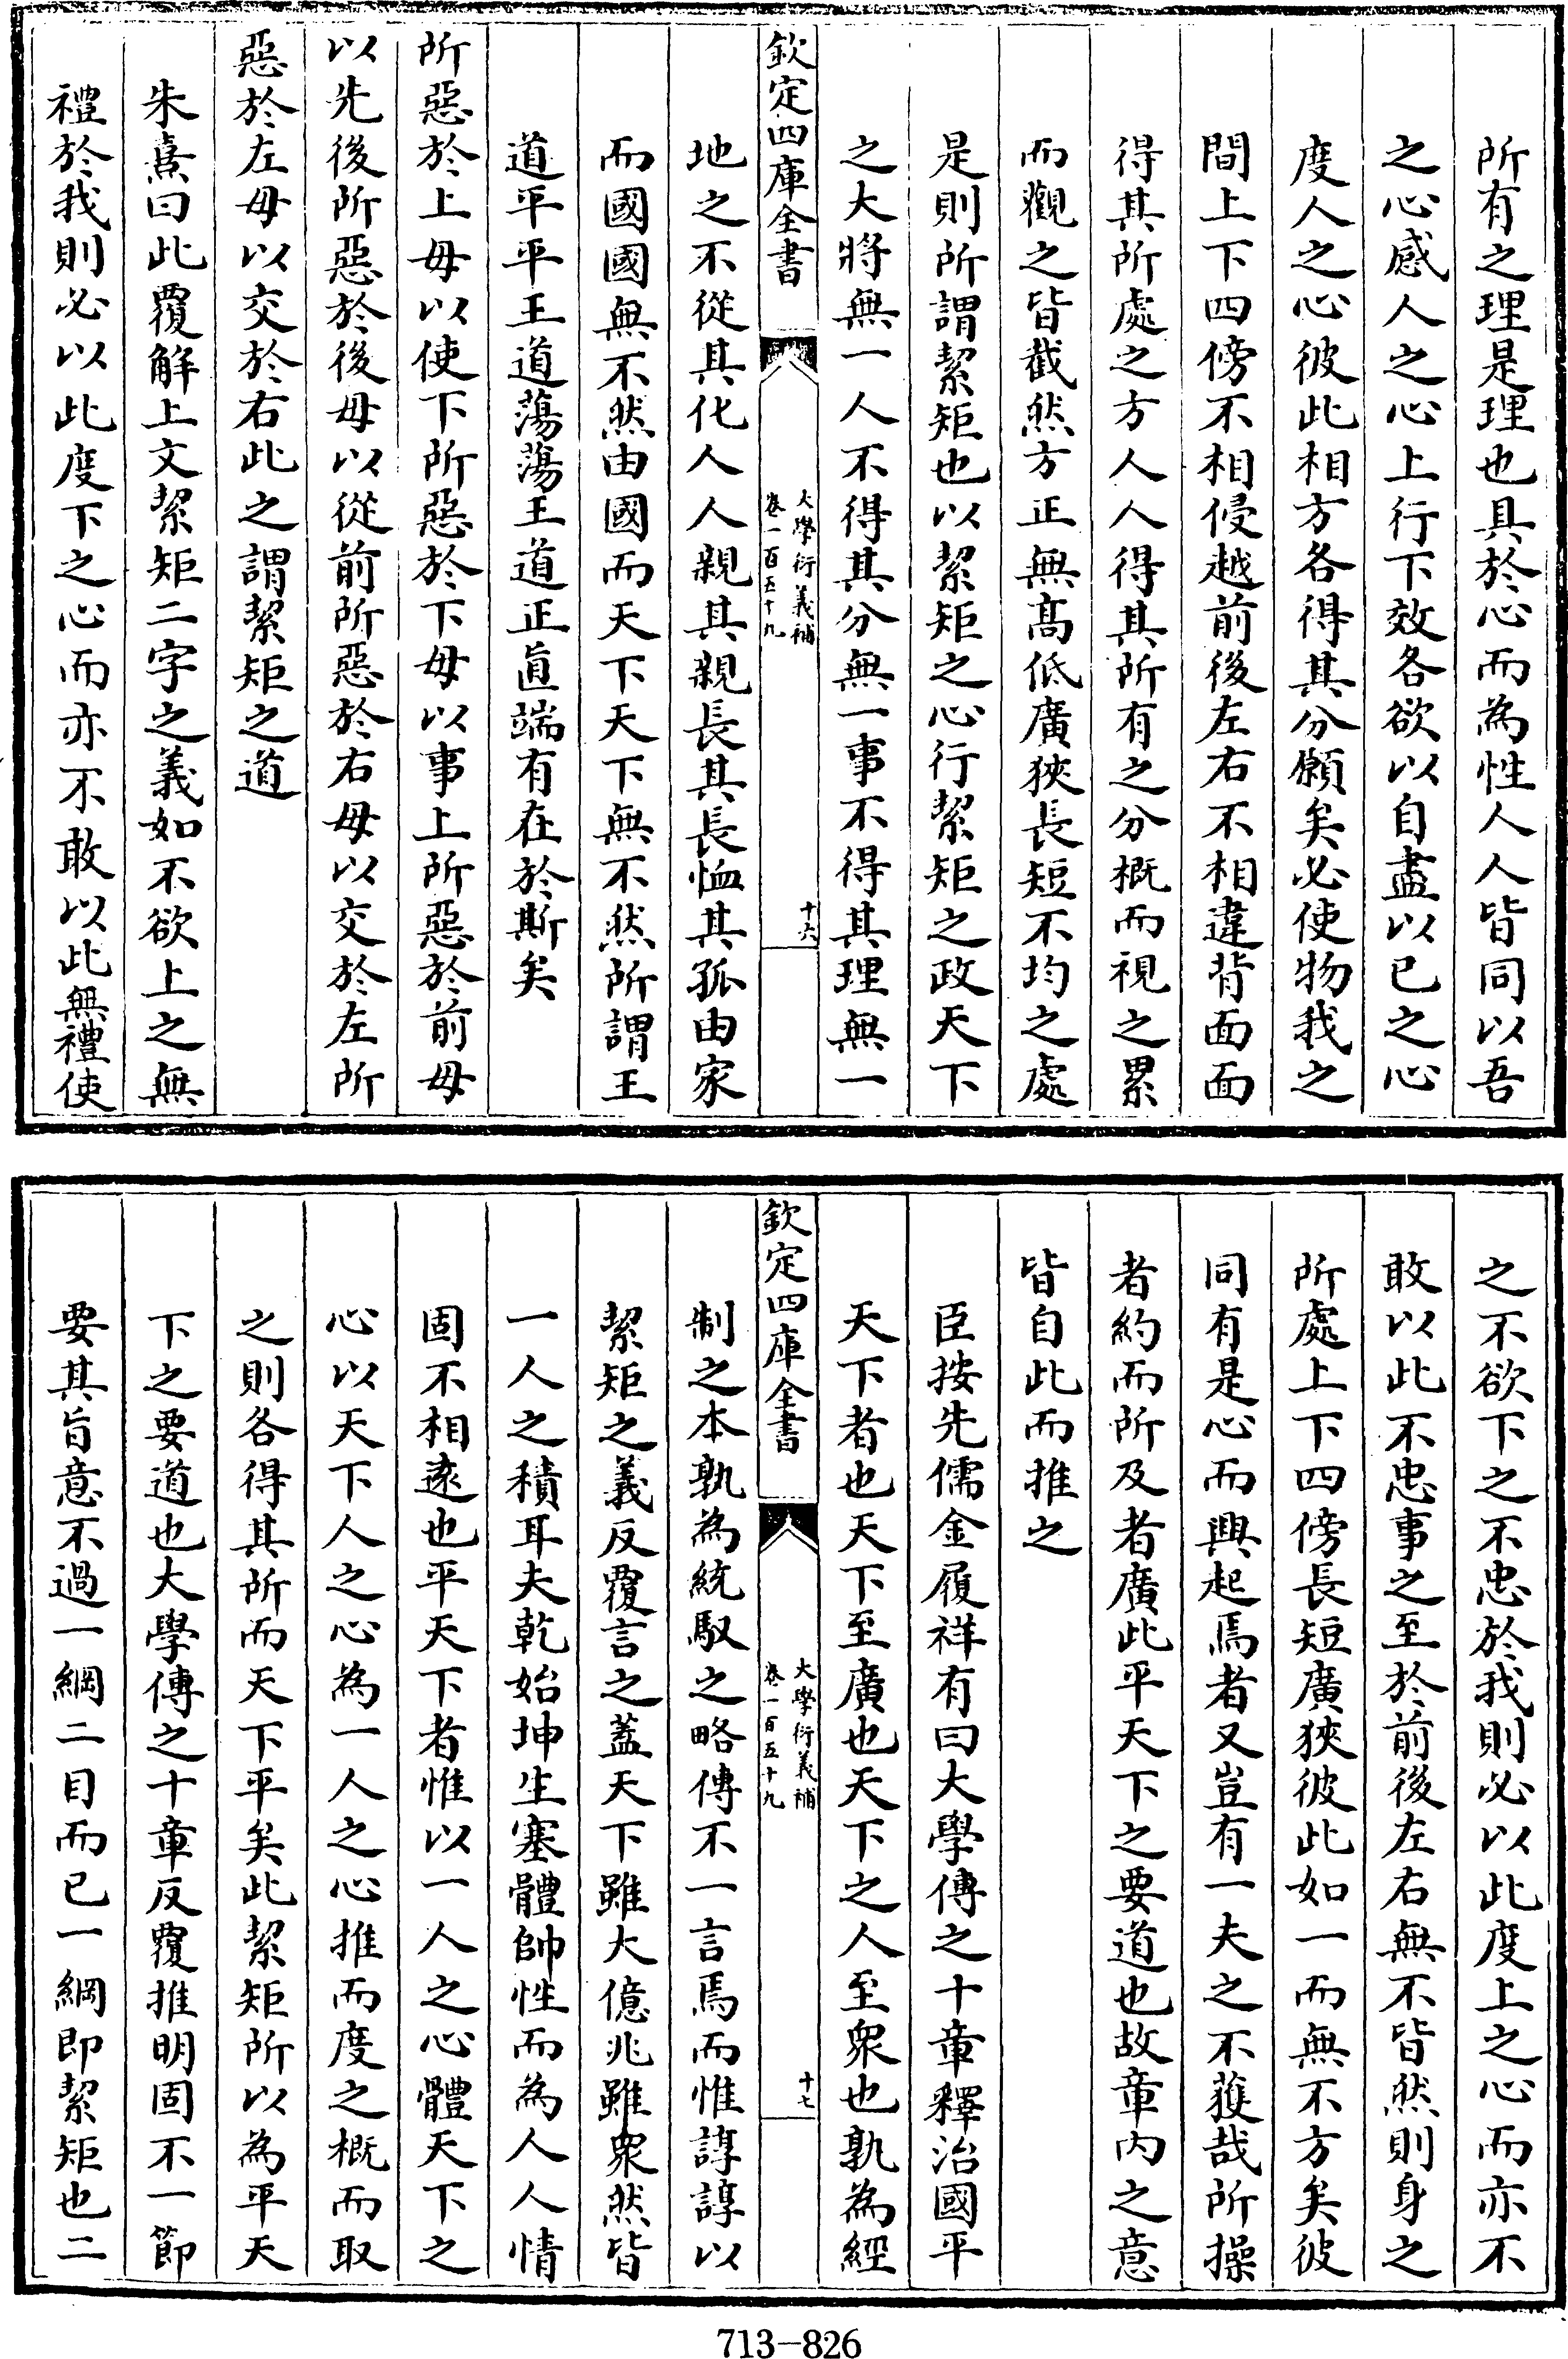 所有之理是理也具於心而為性人人皆同以吾
之心感人之心上行下效各欲以自盡以已之心
度人之心彼此相方各得其分願矣必使物我之
間上下四傍不相侵越前後左右不相違背面面
得其所處之方人人得其所有之分概而視之累
而觀之皆截然方正無髙低廣狹長短不均之處
是則所謂絜矩也以絜矩之心行絜矩之政天下
之大將無一人不得其分無一事不得其理無一
欽定四庫全書
大學衍義補
卷一百五十九
十六
地之不從其化人人親其親長其長恤其孤由家
而國國無不然由國而天下天下無不然所謂王
道平平王道蕩蕩王道正直端有在於斯矣
所惡於上毋以使下所惡於下毋以事上所惡於前毋
以先後所惡於後毋以從前所惡於右毋以交於左所
惡於左毋以交於右此之謂絜矩之道
朱熹曰此覆解上文絜矩二字之義如不欲上之無
禮於我則必以此度下之心而亦不敢以此無禮使
之不欲下之不忠於我則必以此度上之心而亦不
敢以此不忠事之至於前後左右無不皆然則身之
所處上下四傍長短廣狹彼此如一而無不方矣彼
同有是心而興起焉者又豈有一夫之不獲哉所操
者約而所及者廣此平天下之要道也故章内之意
皆自此而推之
臣按先儒金履祥有曰大學傳之十章釋治國平
天下者也天下至廣也天下之人至衆也孰為經
欽定四庫全書
大學衍義補
卷一百五十九
十七
制之本孰為統馭之略傳不一言焉而惟諄諄以
絜矩之義反覆言之蓋天下雖大億兆雖衆然皆
一人之積耳夫乾始坤生塞體帥性而為人人情
固不相逺也平天下者惟以一人之心體天下之
心以天下人之心為一人之心推而度之概而取
之則各得其所而天下平矣此絜矩所以為平天
下之要道也大學傳之十章反覆推明固不一節
要其旨意不過一綱二目而已一綱即絜矩也二
713-826